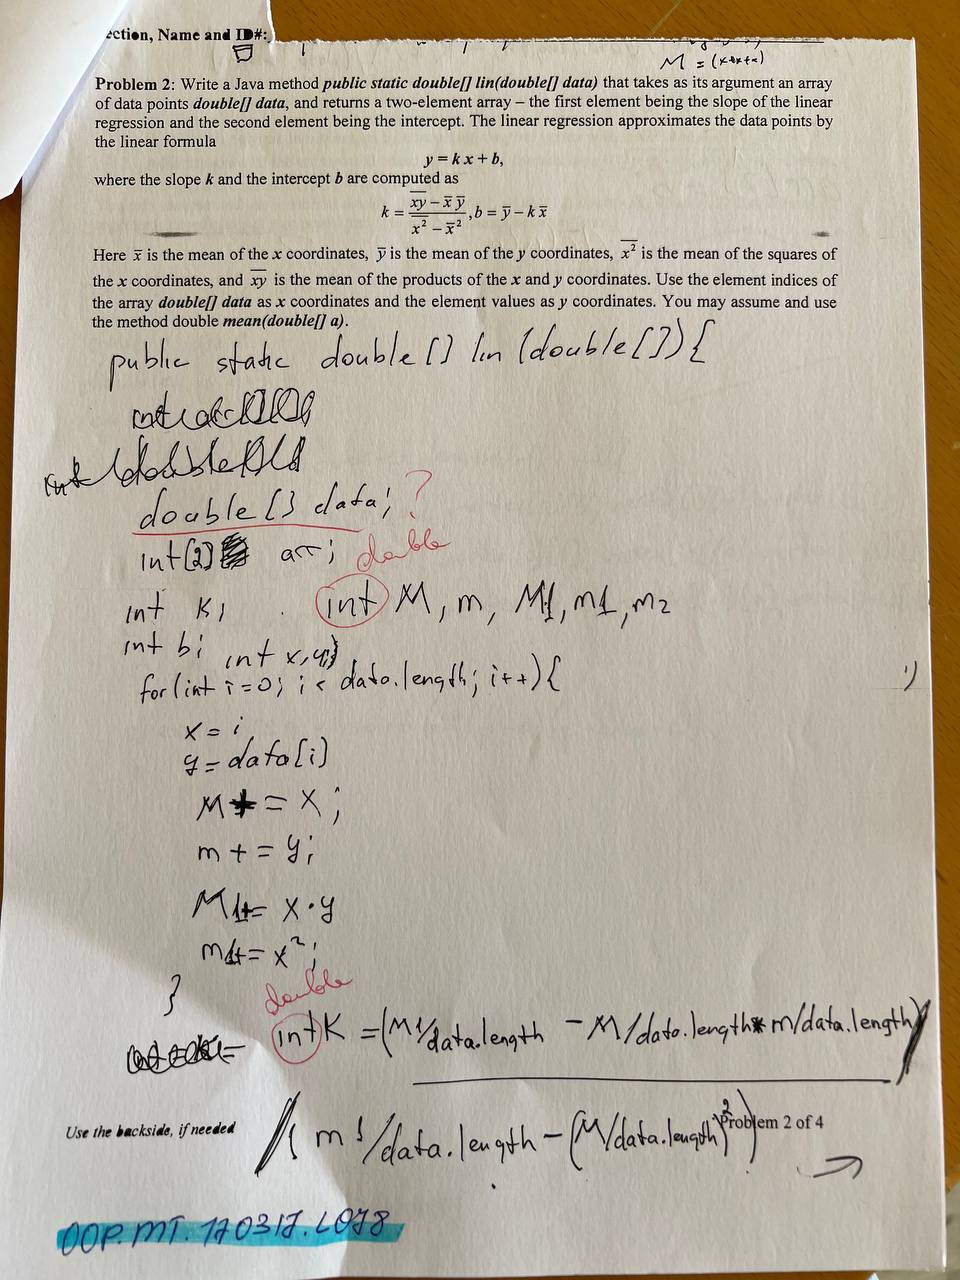 ection, Name and ID#:
M = (x+x+x)
Problem 2: Write a Java method public static double[] lin(double[] data) that takes as its argument an array
of data points double[] data, and returns a two-element array – the first element being the slope of the linear
regression and the second element being the intercept. The linear regression approximates the data points by
the linear formula
y = k x + b,
where the slope k and the intercept b are computed as
k = (\overline{xy} − x̄ ȳ) / (\overline{x²} − x̄²), b = ȳ − k x̄
Here x̄ is the mean of the x coordinates, ȳ is the mean of the y coordinates, \overline{x²} is the mean of the squares of
the x coordinates, and \overline{xy} is the mean of the products of the x and y coordinates. Use the element indices of
the array double[] data as x coordinates and the element values as y coordinates. You may assume and use
the method double mean(double[] a).
public static double[] lin (double[]){
double[] data; ?
int[2] arr; double
int k; int M, m, M1, m1, m2
int b; int x,y;
for(int i=0; i < data.length; i++){
x = i
y = data[i]
M += x;
m += y;
M1+= x·y
m1+= x²;
}
double
int K = (M1/data.length − M/data.length * m/data.length)
/( m1/data.length − (M/data.length)²)
Use the backside, if needed
Problem 2 of 4
OOP.MT.170317.L078